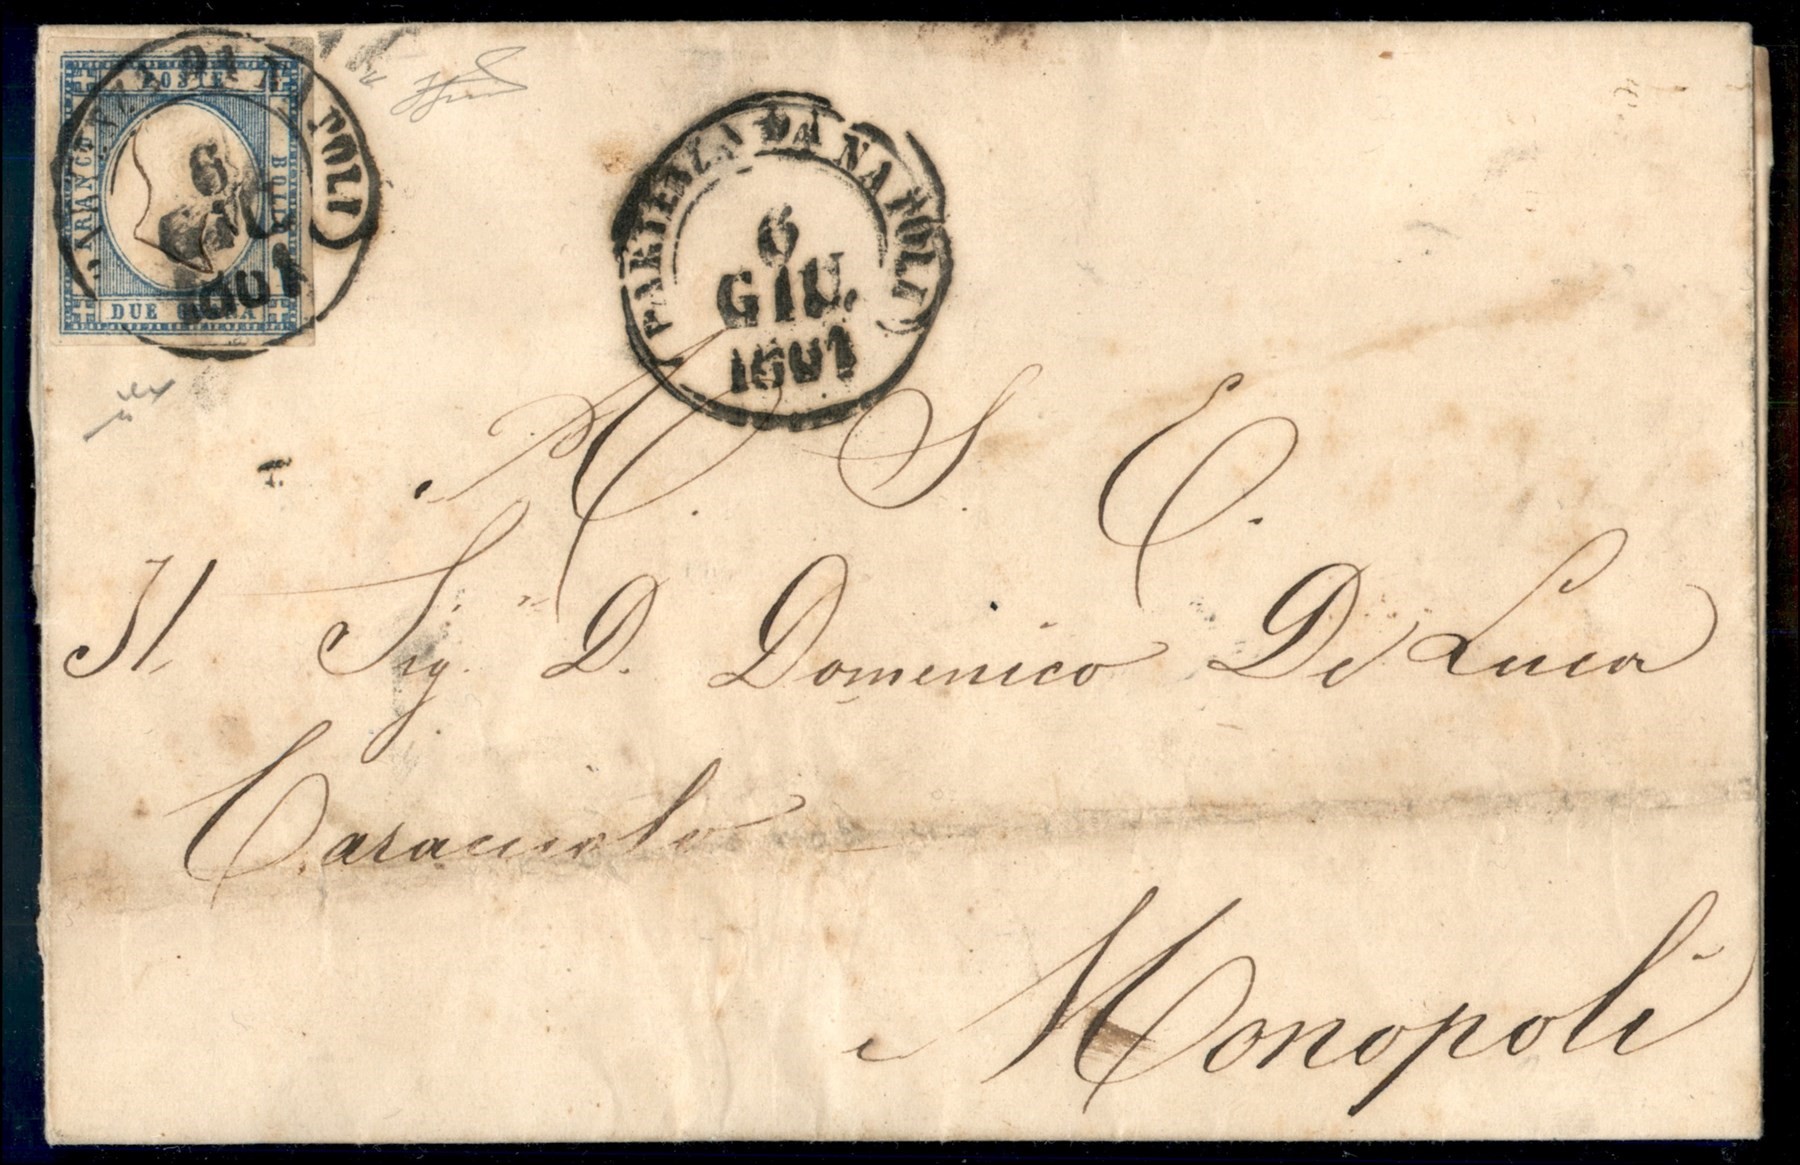 FRANCO
POSTE
BOLLO
DUE GRANA
6
GIU.
(PARTENZA DA NAPOLI)
6
GIU.
1861
A. S. E.
Il Sig. D. Domenico De Luca
Caracciolo
Monopoli